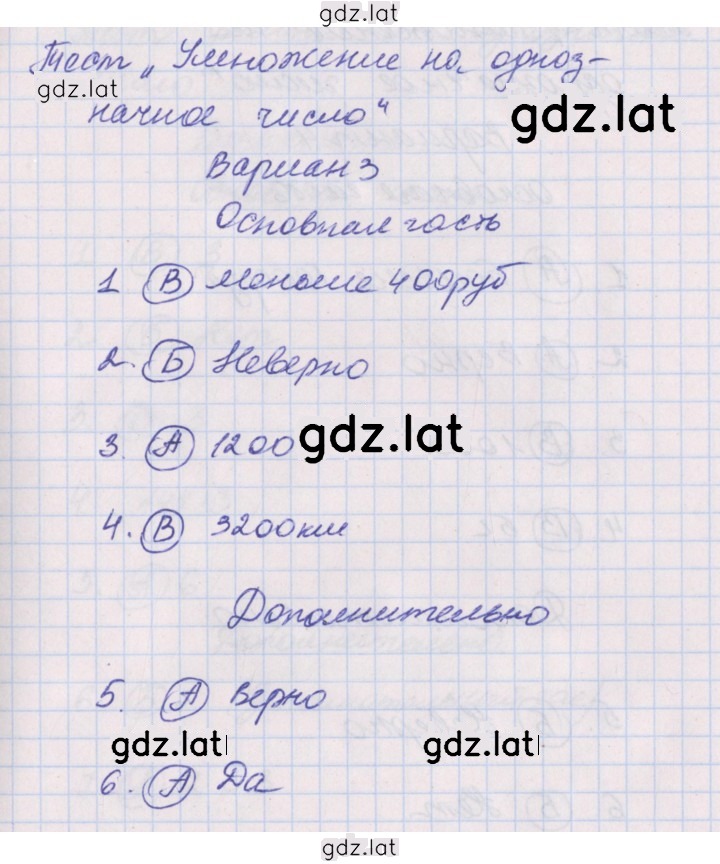 gdz.lat
Тест „Умножение на одноз-
gdz.lat
начное число"
gdz.lat
Вариан 3
Основная часть
1 В Меньше 400руб
2. Б Неверно
3. А 1200
gdz.lat
4. В 3200км
Дополнительно
5. А Верно
gdz.lat gdz.lat
6. А Да
gdz.lat